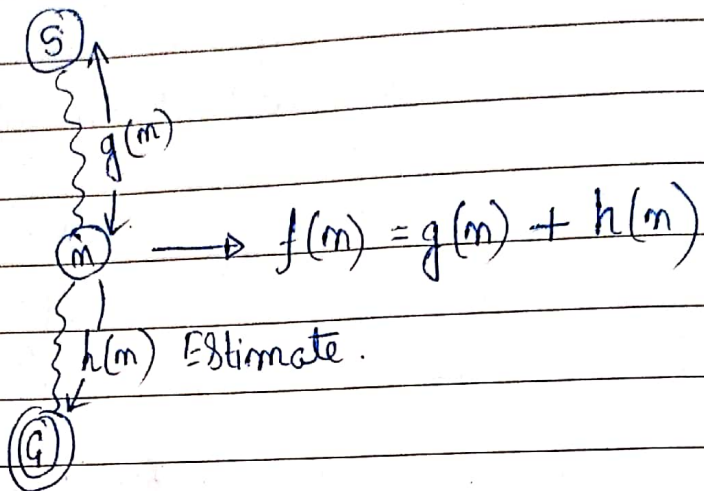 S
g(n)
n → f(n) = g(n) + h(n)
h(n) Estimate.
G